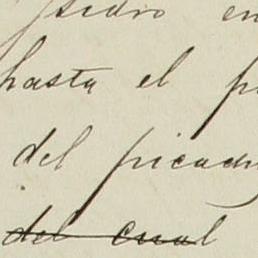 Isidro en
hasta el p
del picad
del cual